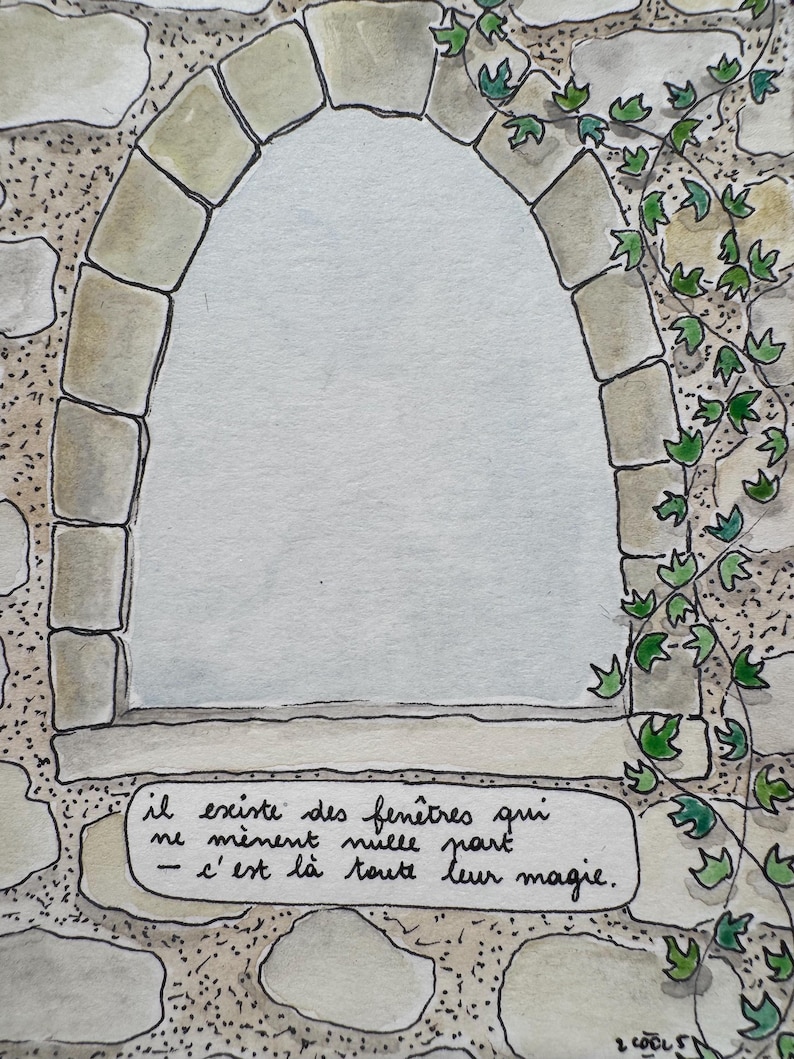 il existe des fenêtres qui
ne mènent nulle part
— c'est là toute leur magie.